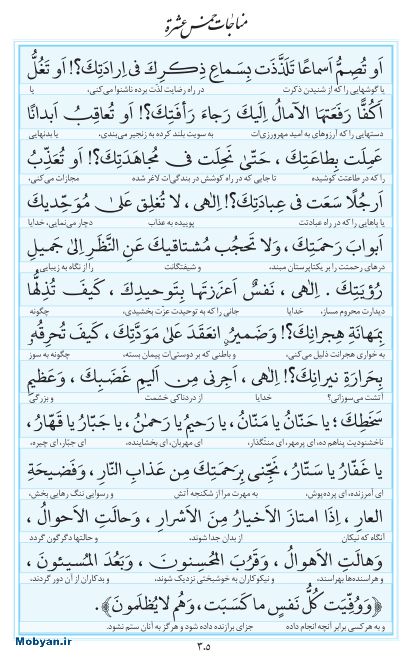 مناجات خمس عشرة
اَو تُصِمُّ اَسماعًا تَلَذَّذَت بِسَماعِ ذِكرِكَ فى اِرادَتِكَ؟! اَو تَغُلُّ
يا گوشهايى را كه از شنيدن ذكرت در راه رضايت لذّت برده ناشنوا مى‌كنى، يا
اَكُفًّا رَفَعَتهَا الآمالُ اِلَيكَ رَجاءَ رَأفَتِكَ؟! اَو تُعاقِبُ اَبدانًا
دستهايى را كه آرزوهاى به اميد مهرورزى‌ات به سويت بلند كرده به زنجير مى‌بندى، يا بدنهايى
عَمِلَت بِطاعَتِكَ ، حَتّىٰ نَحِلَت فى مُجاهَدَتِكَ؟! اَو تُعَذِّبُ
را كه در طاعتت كوشيده تا جايى كه در راه كوشش در بندگى‌ات لاغر شده مجازات مى‌كنى،
اَرجُلًا سَعَت فى عِبادَتِكَ؟! اِلٰهى ، لا تُغلِق عَلىٰ مُوَحِّديكَ
يا پاهايى را كه در راه عبادتت پوييده به عذاب دچار مى‌نمايى، خدايا
اَبوابَ رَحمَتِكَ ، وَلا تَحجُب مُشتاقيكَ عَنِ النَّظَرِ اِلىٰ جَميلِ
درهاى رحمتت را بر يكتاپرستان مبند، و شيفتگانت را از نگاه به زيبايى
رُؤيَتِكَ . اِلٰهى ، نَفسٌ اَعزَزتَها بِتَوحيدِكَ ، كَيفَ تُذِلُّها
ديدارت محروم مساز، خدايا جانى را كه به توحيدت عزّت بخشيدى، چگونه
بِمَهانَةِ هِجرانِكَ؟! وَضَميرٌ انعَقَدَ عَلىٰ مَوَدَّتِكَ ، كَيفَ تُحرِقُهُ
به خوارى هجرانت ذليل مى‌كنى، و باطنى كه بر دوستى‌ات پيمان بسته، چگونه به سوز
بِحَرارَةِ نيرانِكَ؟! اِلٰهى ، اَجِرنى مِن اَليمِ غَضَبِكَ ، وَعَظيمِ
آتشت مى‌سوزانى؟ خدايا از دردناكى خشمت و بزرگى
سَخَطِكَ؛ يا حَنّانُ يا مَنّانُ ، يا رَحيمُ يا رَحمٰنُ ، يا جَبّارُ يا قَهّارُ ،
ناخشنوديت پناهم ده، اى پرمهر، اى منتگذار، اى مهربان، اى بخشاينده، اى جبّار، اى چيره،
يا غَفّارُ يا سَتّارُ ، نَجِّنى بِرَحمَتِكَ مِن عَذابِ النّارِ ، وَفَضيحَةِ
اى آمرزنده، اى پرده‌پوش، به مهرت مرا از شكنجه آتش و رسوايى ننگ رهايى بخش،
العارِ ، اِذَا امتازَ الاَخيارُ مِنَ الاَشرارِ ، وَحالَتِ الاَحوالُ ،
آنگاه كه نيكان از بدان جدا شوند، و حالتها دگرگون گردد
وَهالَتِ الاَهوالُ ، وَقَرُبَ المُحسِنونَ ، وَبَعُدَ المُسيئونَ ،
و هراسنده‌ها بهراسند، و نيكوكاران به خوشبختى نزديك شوند، و بدكاران از آن دور گردند.
﴿وَوُفِّيَت كُلُّ نَفسٍ ما كَسَبَت ، وَهُم لايُظلَمونَ﴾.
و به هر كسى برابر آنچه انجام داده جزاى برازنده داده شود و هرگز به آنان ستم نشود.
۳۰۵
Mobyan.ir